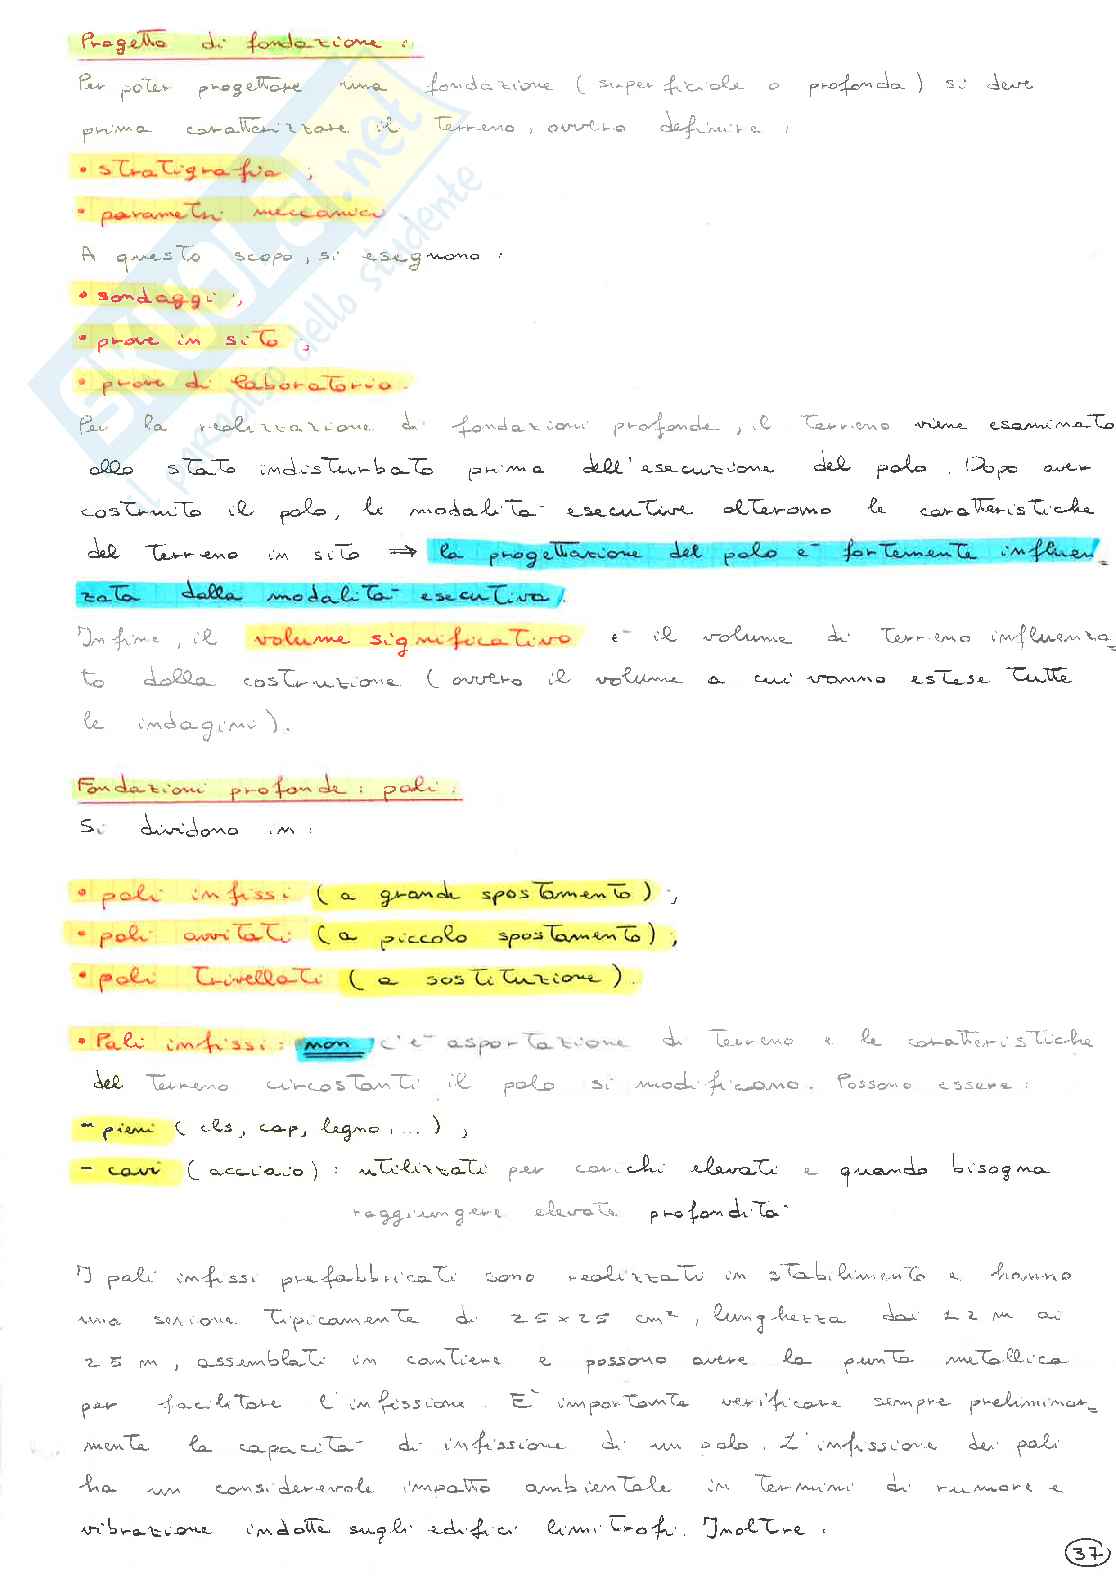 Progetto di fondazione :
Per poter progettare una fondazione (superficiale o profonda) si deve
prima caratterizzare il terreno, ovvero definire :
• stratigrafia ;
• parametri meccanici .
A questo scopo, si eseguono :
• sondaggi ;
• prove in sito ;
• prove di laboratorio .
Per la realizzazione di fondazioni profonde, il terreno viene esaminato
allo stato indisturbato prima dell'esecuzione del palo. Dopo aver
costruito il palo, le modalità esecutive alterano le caratteristiche
del terreno in sito ⇒ la progettazione del palo è fortemente influen_
zata dalla modalità esecutiva.
Infine, il volume significativo è il volume di terreno influenza_
to dalla costruzione (ovvero il volume a cui vanno estese tutte
le indagini).
Fondazioni profonde : pali :
Si dividono in :
• pali infissi (a grande spostamento) ;
• pali avvitati (a piccolo spostamento) ;
• pali trivellati (a sostituzione) .
• Pali infissi : non c'è asportazione di terreno e le caratteristiche
del terreno circostanti il palo si modificano. Possono essere :
- pieni (cls, cap, legno, ...) ;
- cavi (acciaio) : utilizzati per carichi elevati e quando bisogna
raggiungere elevate profondità
I pali infissi prefabbricati sono realizzati in stabilimento e hanno
una sezione tipicamente di 25x25 cm², lunghezza dai 12 m ai
25 m, assemblati in cantiere e possono avere la punta metallica
per facilitare l'infissione. È importante verificare sempre preliminar_
mente la capacità di infissione di un palo. L'infissione dei pali
ha un considerevole impatto ambientale in termini di rumore e
vibrazione indotte sugli edifici limitrofi. Inoltre :
37
SKUOLA.net
il paradiso dello studente